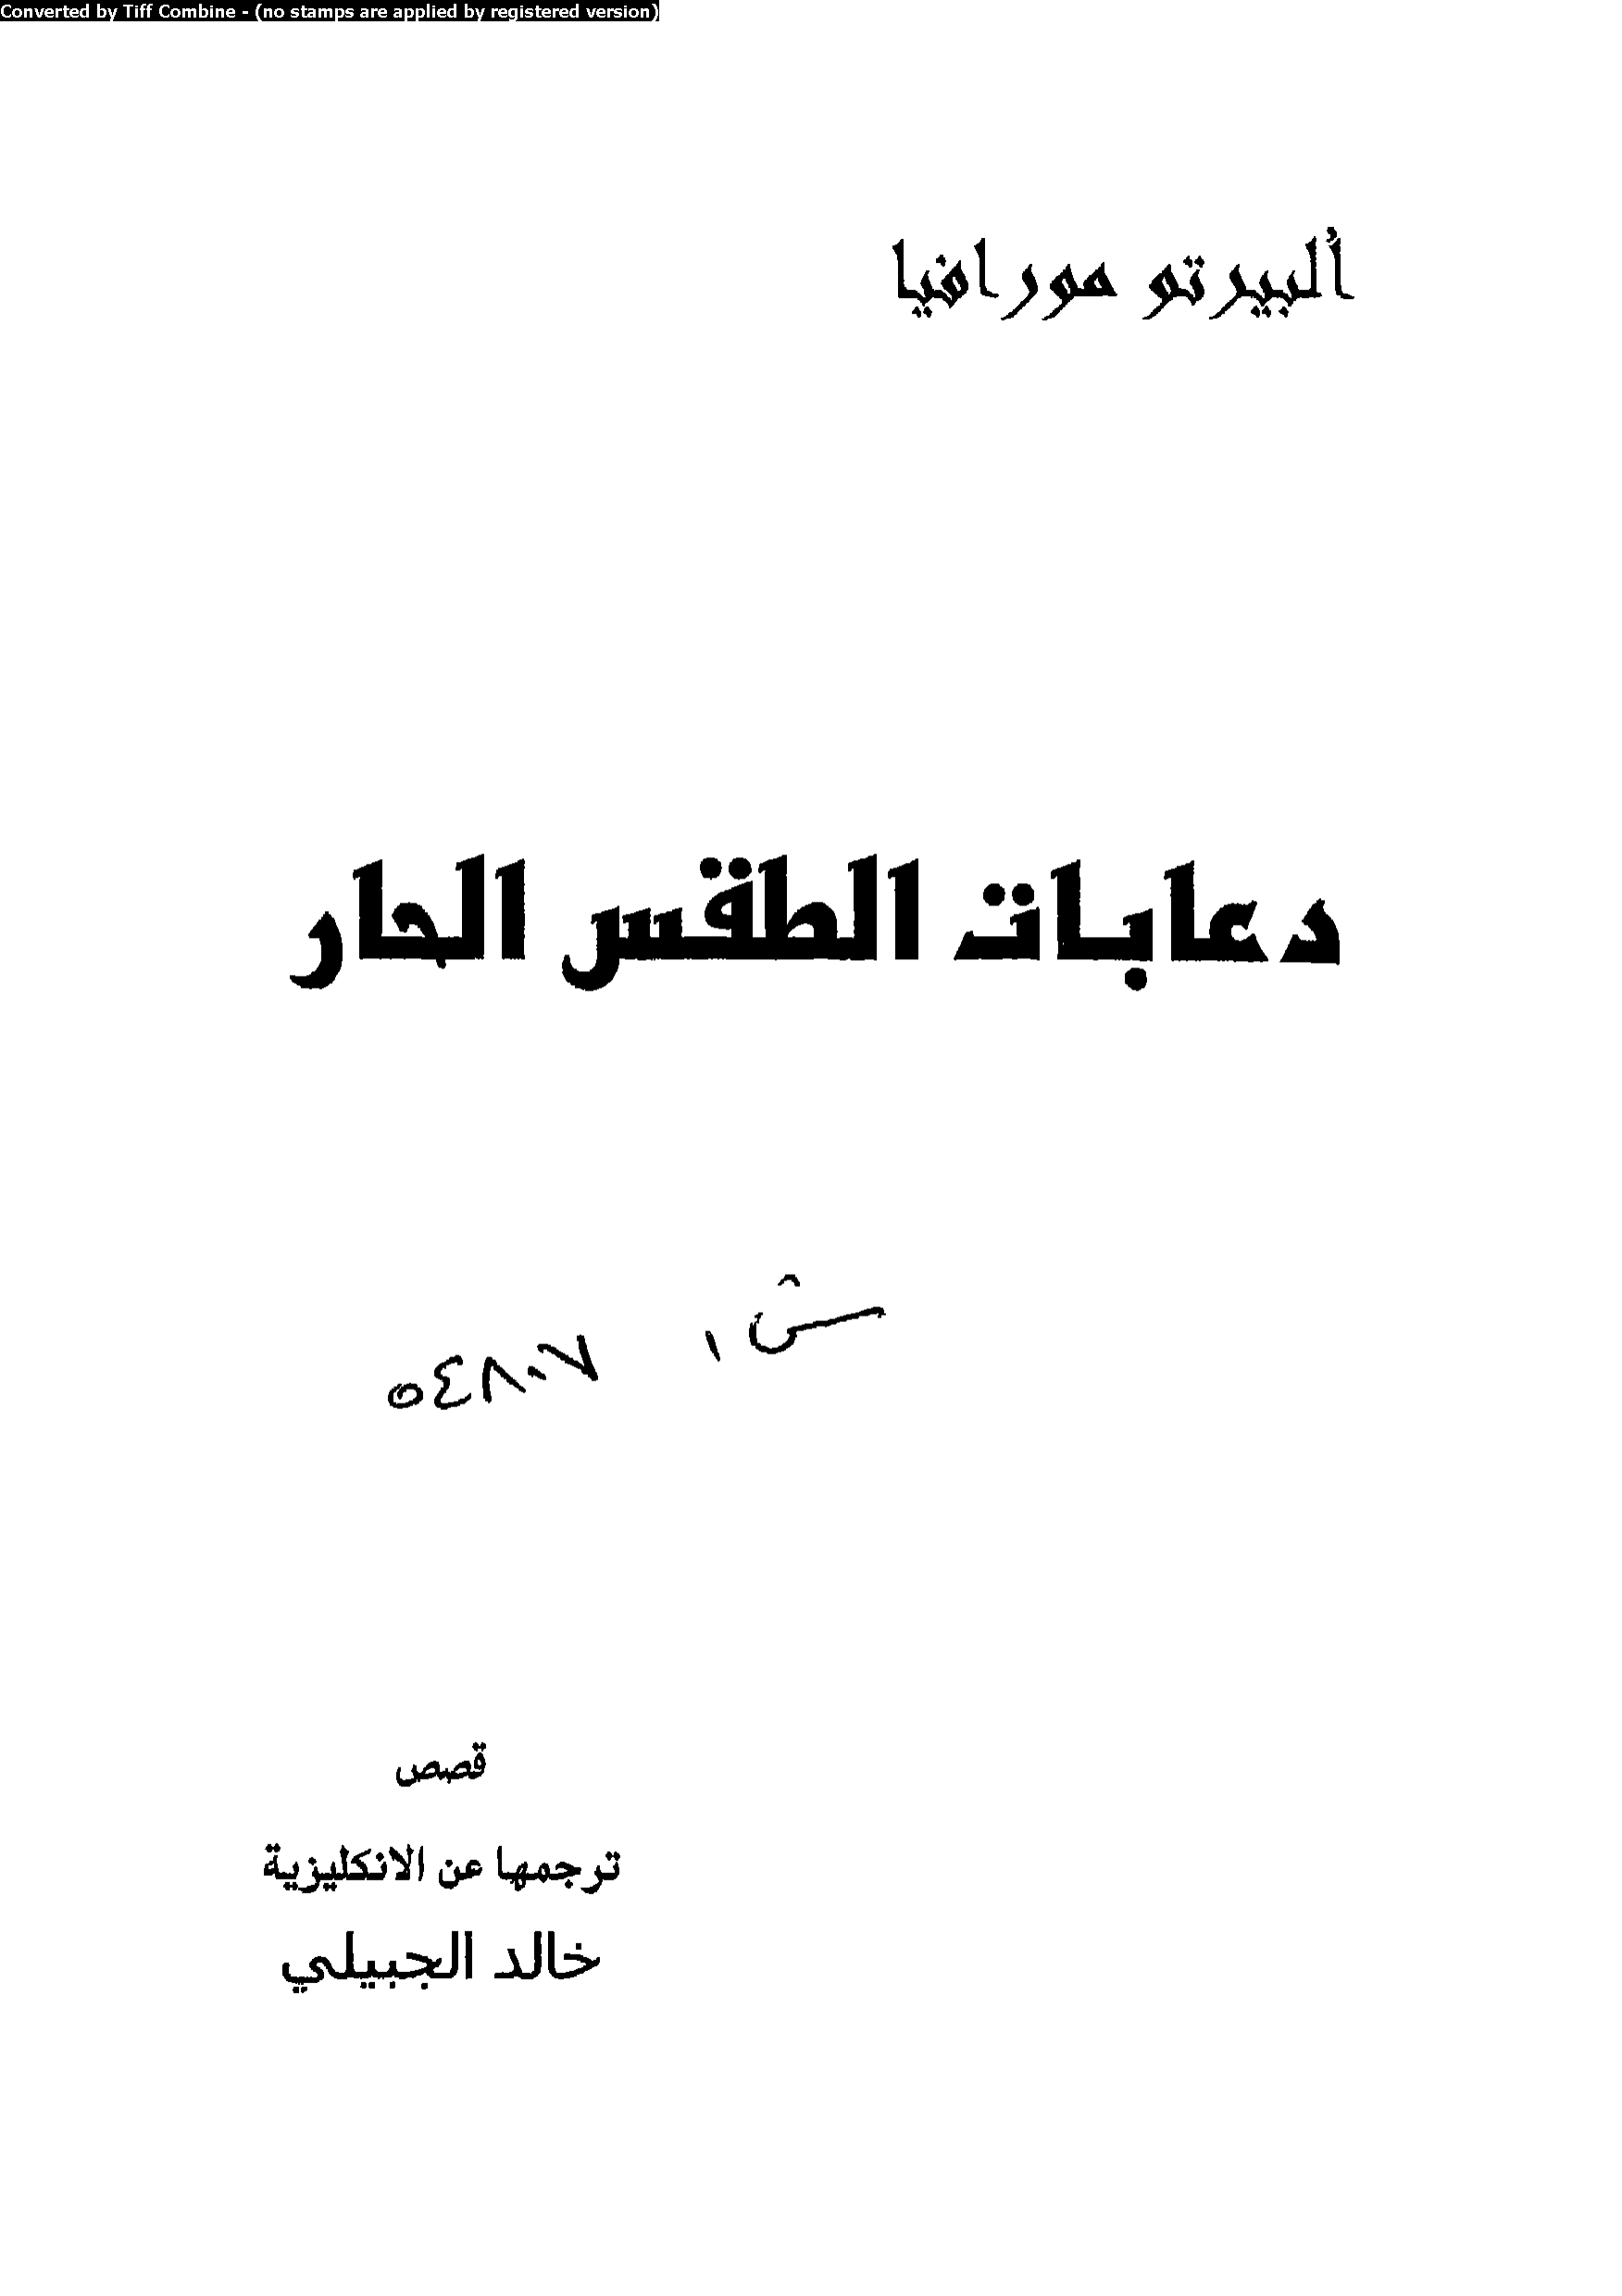 Converted by Tiff Combine - (no stamps are applied by registered version)
ألبيرتو مورافيا
دعابات الطقس الحار
٥٤٨٠٧
قصص
ترجمها عن الانكليزية
خالد الجبيلي